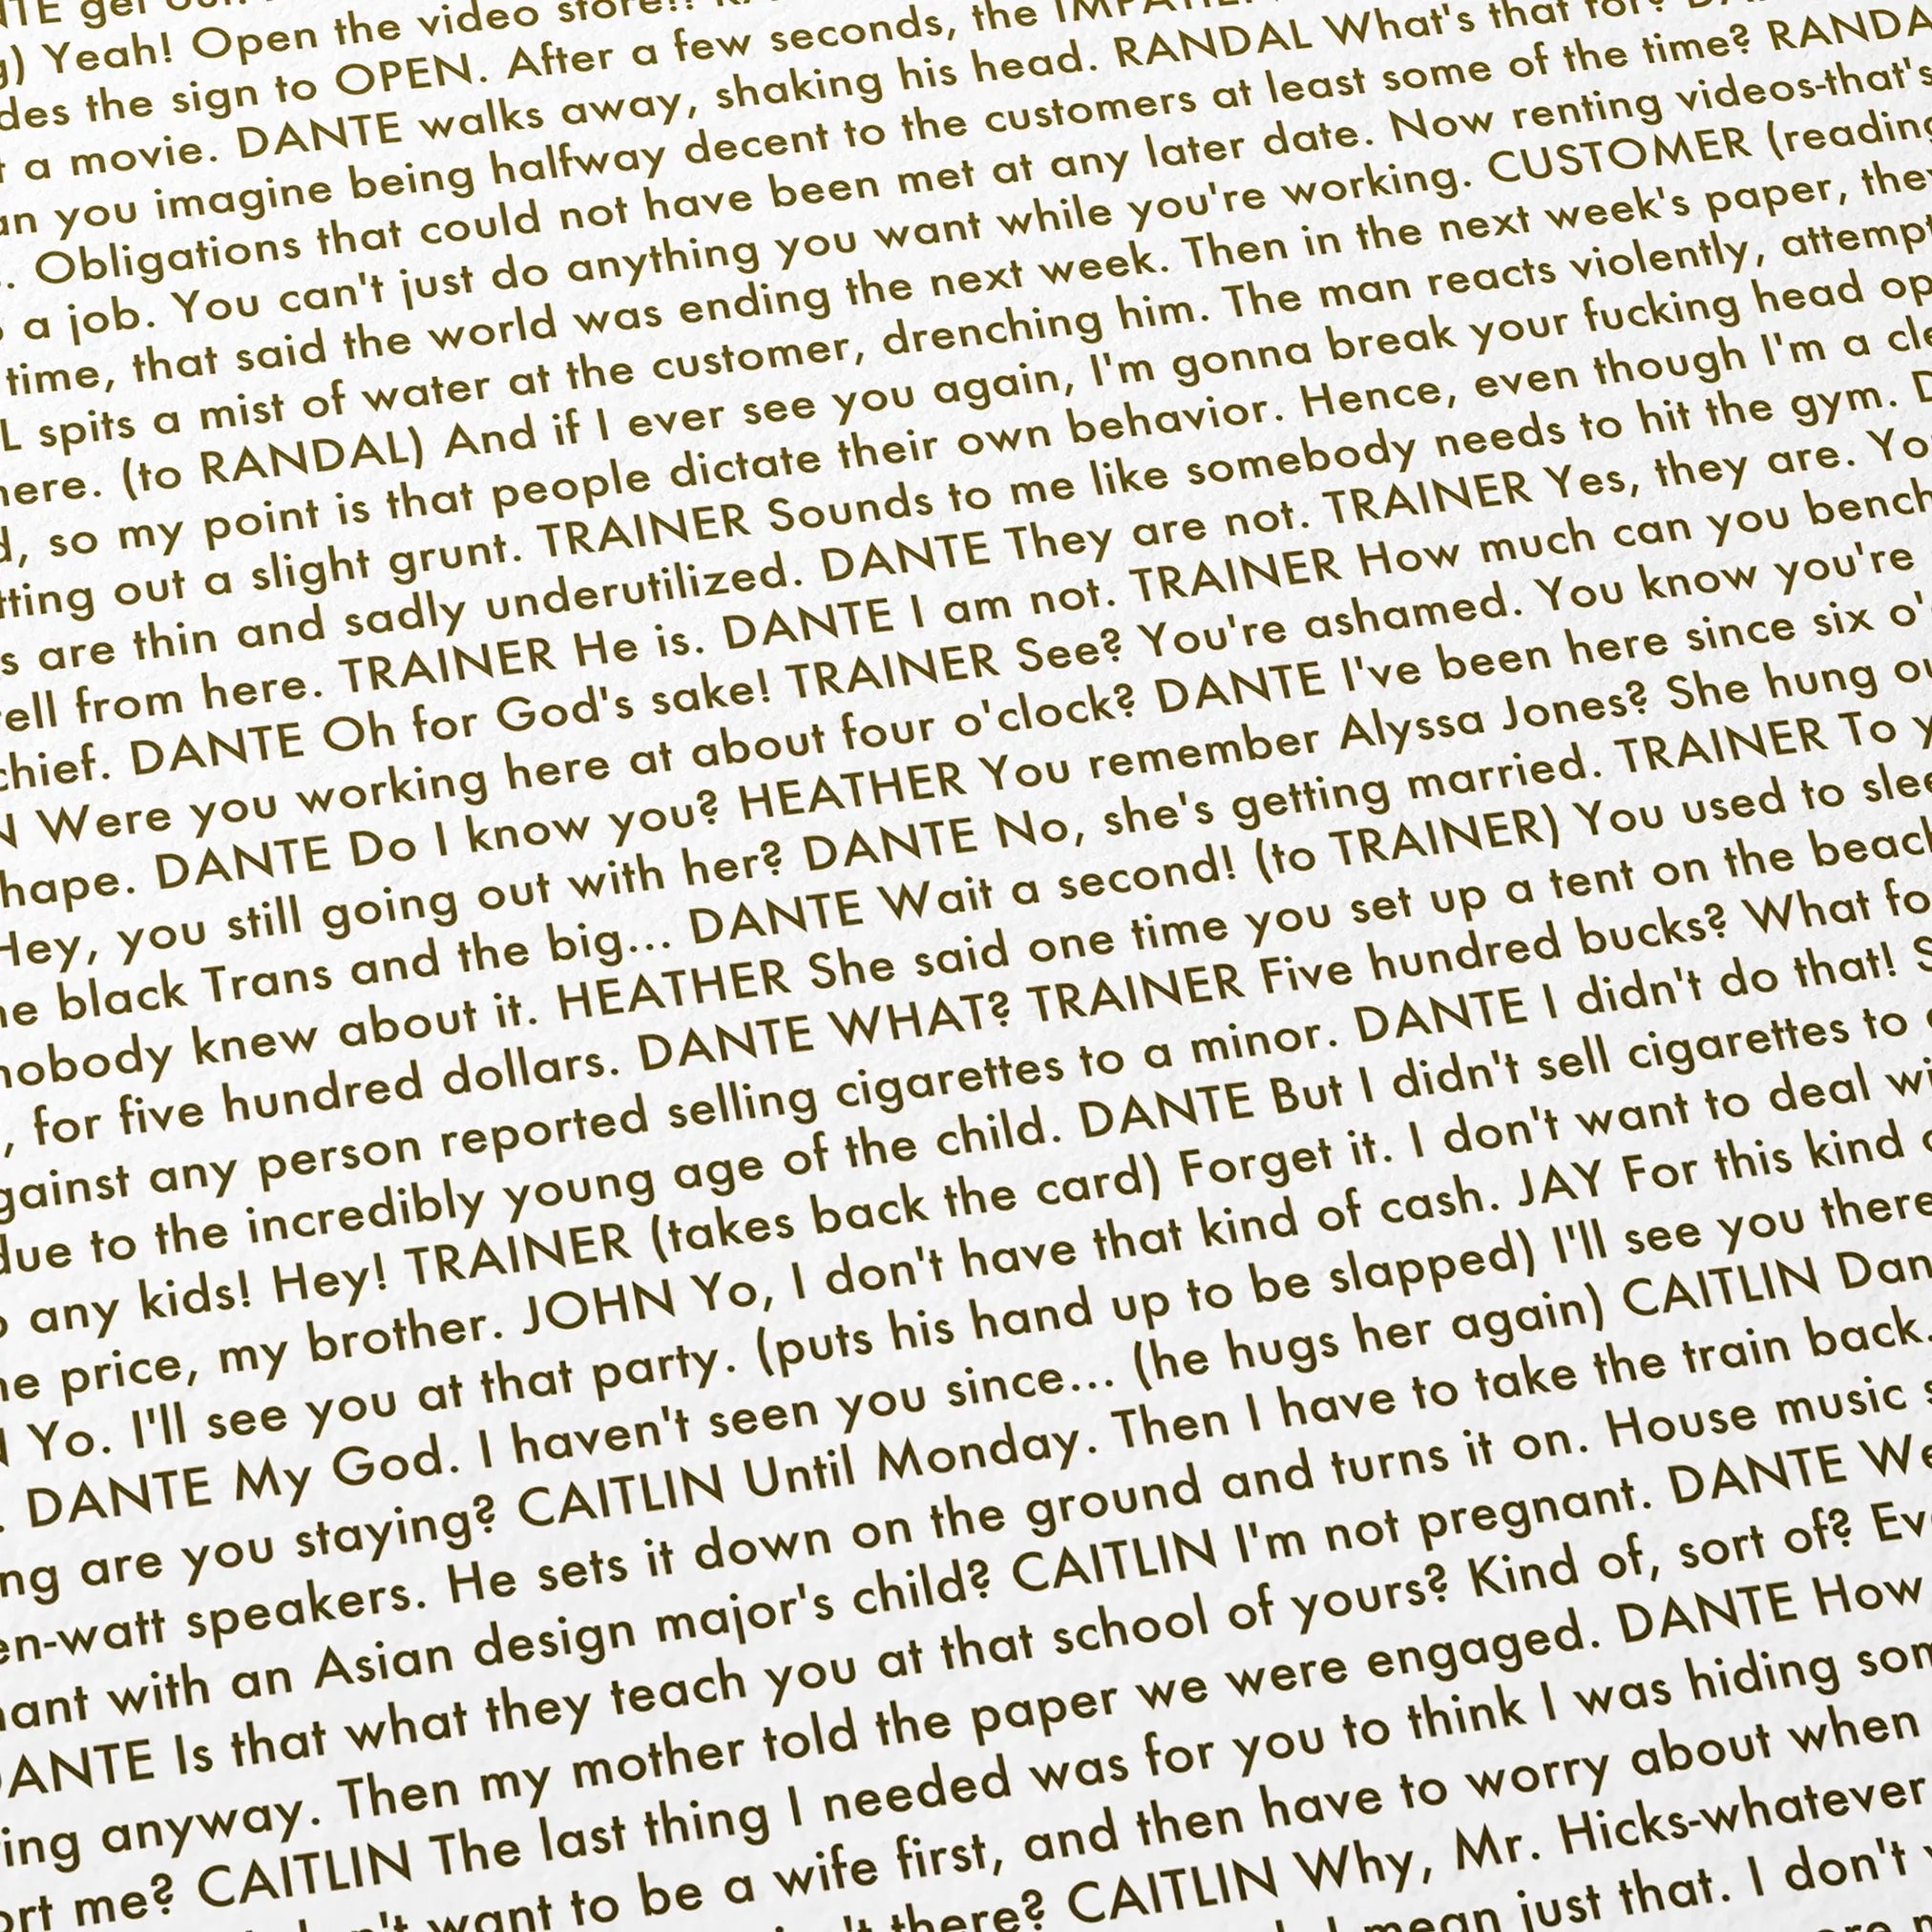 get out
Yeah! Open the video store!!
des the sign to OPEN. After a few seconds, the
a movie. DANTE walks away, shaking his head. RANDAL What's that for?
an you imagine being halfway decent to the customers at least some of the time? RANDA
. Obligations that could not have been met at any later date. Now renting videos-that's
a job. You can't just do anything you want while you're working. CUSTOMER (reading
time, that said the world was ending the next week. Then in the next week's paper, they
L spits a mist of water at the customer, drenching him. The man reacts violently, attempt
here. (to RANDAL) And if I ever see you again, I'm gonna break your fucking head op
d, so my point is that people dictate their own behavior. Hence, even though I'm a cle
tting out a slight grunt. TRAINER Sounds to me like somebody needs to hit the gym. D
s are thin and sadly underutilized. DANTE They are not. TRAINER Yes, they are. Yo
ell from here. TRAINER He is. DANTE I am not. TRAINER How much can you bench
chief. DANTE Oh for God's sake! TRAINER See? You're ashamed. You know you're
N Were you working here at about four o'clock? DANTE I've been here since six o'
hape. DANTE Do I know you? HEATHER You remember Alyssa Jones? She hung ou
Hey, you still going out with her? DANTE No, she's getting married. TRAINER To y
he black Trans and the big... DANTE Wait a second! (to TRAINER) You used to slee
nobody knew about it. HEATHER She said one time you set up a tent on the beach
, for five hundred dollars. DANTE WHAT? TRAINER Five hundred bucks? What fo
gainst any person reported selling cigarettes to a minor. DANTE I didn't do that! S
due to the incredibly young age of the child. DANTE But I didn't sell cigarettes to
any kids! Hey! TRAINER (takes back the card) Forget it. I don't want to deal wi
he price, my brother. JOHN Yo, I don't have that kind of cash. JAY For this kind
Yo. I'll see you at that party. (puts his hand up to be slapped) I'll see you there
. DANTE My God. I haven't seen you since... (he hugs her again) CAITLIN Dan
ng are you staying? CAITLIN Until Monday. Then I have to take the train back.
en-watt speakers. He sets it down on the ground and turns it on. House music
nant with an Asian design major's child? CAITLIN I'm not pregnant. DANTE We
DANTE Is that what they teach you at that school of yours? Kind of, sort of? Ev
ing anyway. Then my mother told the paper we were engaged. DANTE How
ort me? CAITLIN The last thing I needed was for you to think I was hiding som
want to be a wife first, and then have to worry about when
there? CAITLIN Why, Mr. Hicks-whatever
mean just that. I don't